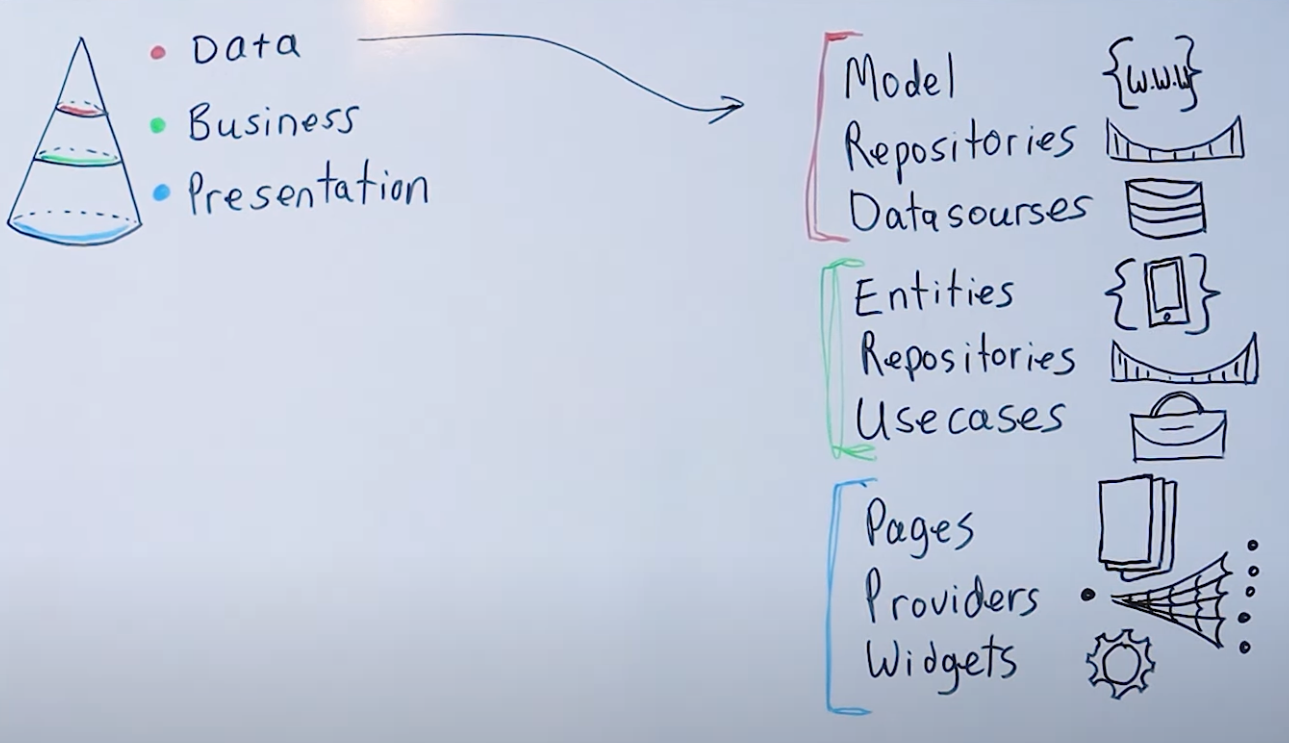 Data
Business
Presentation
Model {w.w.w}
Repositories
Datasourses
Entities
Repositories
Usecases
Pages
Providers
Widgets